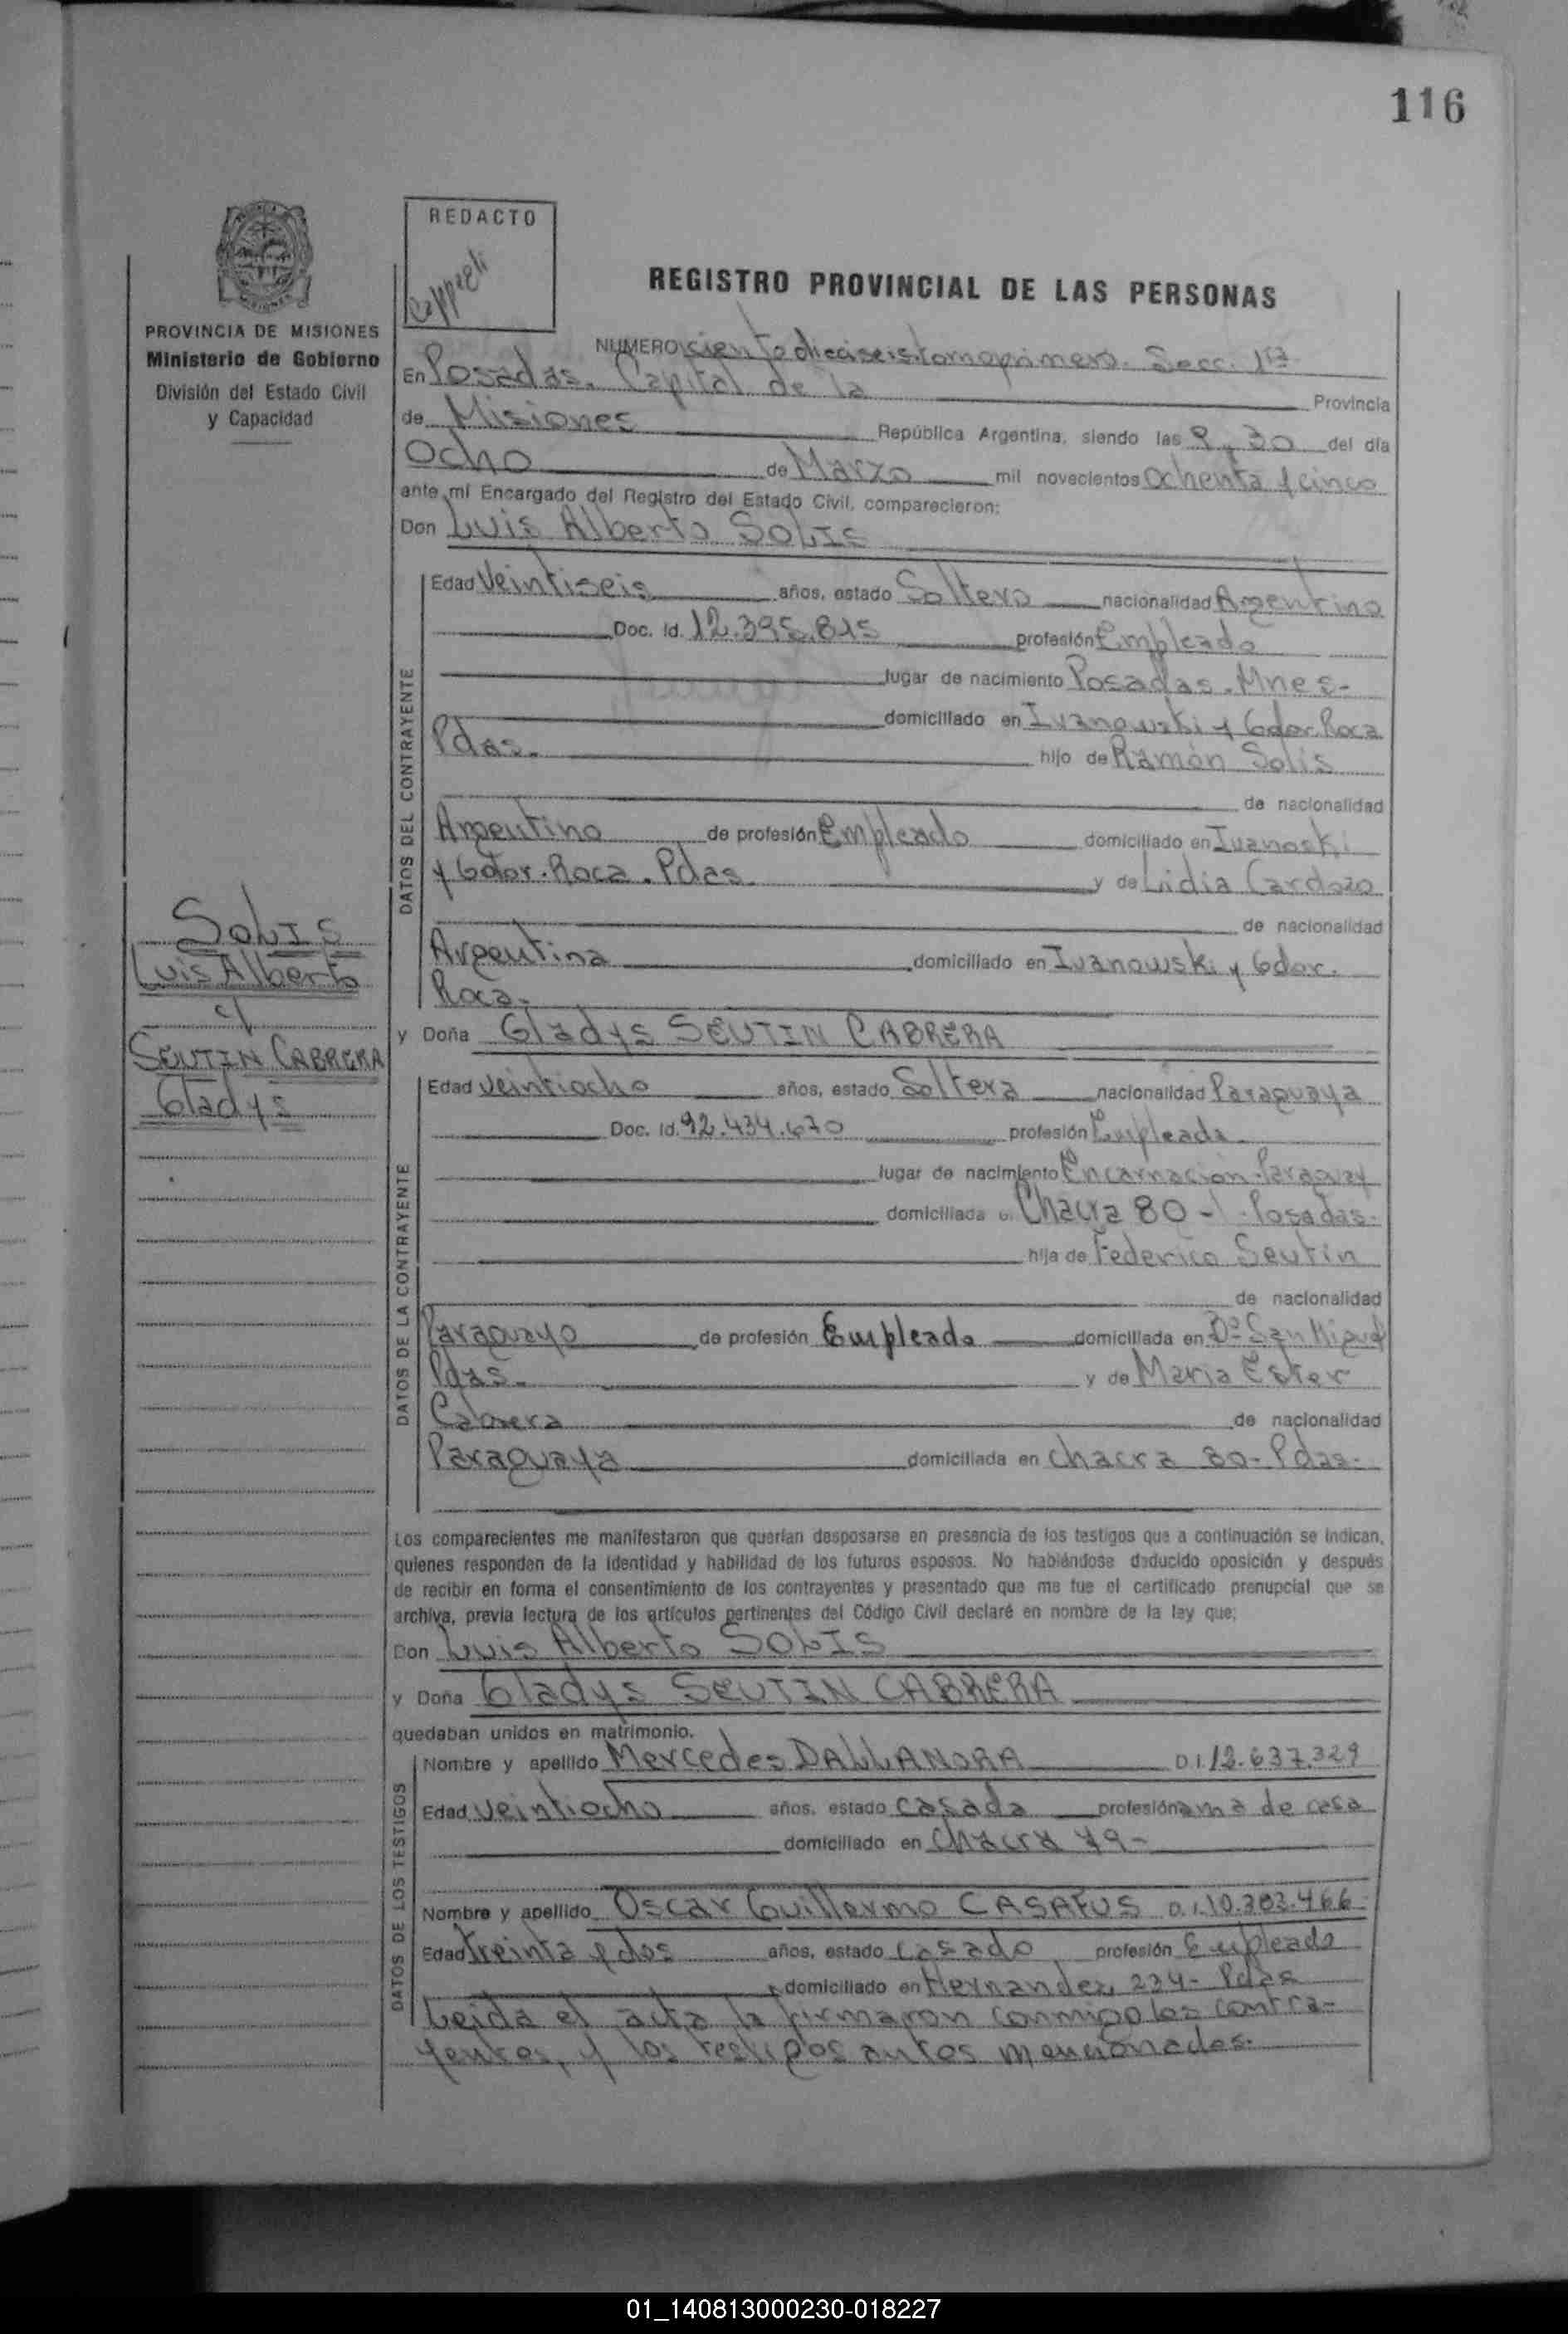 116
REDACTO
REGISTRO PROVINCIAL DE LAS PERSONAS
PROVINCIA DE MISIONES
Ministerio de Gobierno
División del Estado Civil
y Capacidad
SOLIS
Luis Alberto
c/
SEUTIN CABRERA
Gladys
NUMERO ciento dieciseis tomo primero. Secc. 1ra
En Posadas. Capital de la Provincia
de Misiones República Argentina, siendo las 9,30 del día
Ocho de Marzo mil novecientos Ochenta y cinco
ante mi Encargado del Registro del Estado Civil, comparecieron:
Don Luis Alberto SOLIS
DATOS DEL CONTRAYENTE
Edad Veintiseis años, estado Soltero nacionalidad Argentino
Doc. Id. 12.395.815 profesión Empleado
lugar de nacimiento Posadas. Mnes-
domiciliado en Ivanowski y Gdor. Roca
Pdas. hijo de Ramón Solis
de nacionalidad
Argentino de profesión Empleado domiciliado en Ivanoski
y Gdor. Roca. Pdas. y de Lidia Cardozo
de nacionalidad
Argentina domiciliado en Ivanowski y Gdor.
Roca.
y Doña Gladys SEUTIN CABRERA
DATOS DE LA CONTRAYENTE
Edad Veintiocho años, estado Soltera nacionalidad Paraguaya
Doc. Id. 92.434.670 profesión Empleada
lugar de nacimiento Encarnación-Paraguay
domiciliada Chacra 80 - Posadas-
hija de Federico Seutin
de nacionalidad
Paraguayo de profesión Empleado domiciliada en Bº San Miguel
Pdas. y de Maria Ester
Cabrera de nacionalidad
Paraguaya domiciliada en chacra 80-Pdas-
Los comparecientes me manifestaron que querían desposarse en presencia de los testigos que a continuación se indican,
quienes responden de la identidad y habilidad de los futuros esposos. No habiéndose deducido oposición y después
de recibir en forma el consentimiento de los contrayentes y presentado que me fue el certificado prenupcial que se
archiva, previa lectura de los artículos pertinentes del Código Civil declaré en nombre de la ley que;
Don Luis Alberto SOLIS
y Doña Gladys SEUTIN CABRERA
quedaban unidos en matrimonio.
DATOS DE LOS TESTIGOS
Nombre y apellido Mercedes DALLANORA D.I. 12.637.329
Edad veintiocho años, estado casada profesión ama de casa
domiciliado en chacra 79-
Nombre y apellido Oscar Guillermo CASAFUS D.I. 10.303.466
Edad treinta y dos años, estado casado profesión Empleado
domiciliado en Hernandez 234- Pdas
Leida el acta la firmaron conmigo los contra-
yentes, y los testigos antes mencionados.
01_140813000230-018227